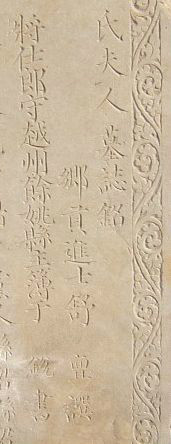 氏夫人墓誌銘
鄉貢進士舒亶譔
將仕郎守越州餘姚縣主簿于書